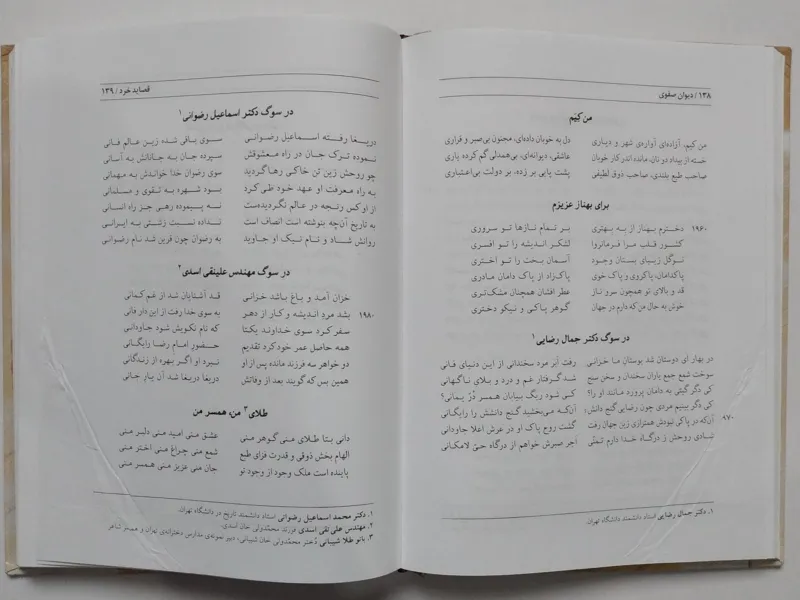 ۱۳۸ / دیوان صفوی
من کیَم
من کیم، آزاده‌ای آواره‌ی شهر و دیاری دل به خوبان داده‌ای، مجنون بی‌صبر و قراری
خسته از بیداد دو نان، مانده اندر کار خوبان عاشقی، دیوانه‌ای، بی‌همدلی گم کرده یاری
صاحب طبع بلندی، صاحب ذوق لطیفی پشت پایی بر زده، بر دولت بی‌اعتباری
برای بهناز عزیزم
۱۹۶۰ دخترم بهناز از به بهتری بر تمام نازها تو سروری
کشور قلب مرا فرمانروا لشکر اندیشه را تو افسری
نوگل زیبای بستان وجود آسمان بخت را تو اختری
پاکدامان، پاکروی و پاک خوی پاکزاد از پاک دامان مادری
قد و بالای تو همچون سرو ناز عطر افشان همچنان مشک‌تری
خوش به حال من که دارم در جهان گوهر پاکی و نیکو دختری
در سوگ دکتر جمال رضایی ۱
در بهار ای دوستان شد بوستان ما خزانی رفت ابر مرد سخندانی از این دنیای فانی
سوخت شمع جمع یاران سخندان و سخن سنج شد گرفتار غم و درد و بلای ناگهانی
کی دگر گیتی به دامان پرورد مانند او را؟ کی شود ریگ بیابان همسر دُرّ یمانی؟
کی دگر بینیم مردی چون رضایی گنج دانش؛ آنکه می‌بخشید گنج دانشش را رایگانی
۹۷۰ آن‌که در پاکی نبودش همترازی زین جهان رفت گشت روح پاک او در عرش اعلا جاودانی
شادی روحش ز درگاه خدا دارم تمنّی اجر صبرش خواهم از درگاه حیّ لامکانی
۱. دکتر جمال رضایی استاد دانشمند دانشگاه تهران.
قصاید خرد / ۱۳۹
در سوگ دکتر اسماعیل رضوانی ۱
دریغا رفته اسماعیل رضوانی سوی باقی شده زین عالم فانی
نموده ترک جان در راه معشوقش سپرده جان به جانانش به آسانی
چو روحش زین تن خاکی رها گردید سوی رضوان خدا خواندش به مهمانی
به راه معرفت او عهد خود طی کرد بود شهره به تقوی و مسلمانی
از او کس رنجه در عالم نگردیده‌ست نه پیموده رهی جز راه انسانی
به تاریخ آن‌چه بنوشته است انصاف است نداده نسبت زشتی به ایرانی
روانش شاد و نام نیک او جاوید به رضوان چون قرین شد نام رضوانی
در سوگ مهندس علینقی اسدی ۲
خزان آمد و باغ باشد خزانی قد آشنایان شد از غم کمانی
۱۹۸۰ بشد مرد اندیشه و کار از دهر به سوی خدا رفت از این دار فانی
سفر کرد سوی خداوند یکتا که نام نکویش شود جاودانی
همه حاصل عمر خود کرد تقدیم حضور امام رضا رایگانی
دو خواهر سه فرزند مانده پس از او نبرد او اگر بهره از زندگانی
همین بس که گویند بعد از وفاتش دریغا دریغا شد آن یار جانی
طلای ۳ من، همسر من
دانی بتا طلای منی گوهر منی عشق منی امید منی دلبر منی
الهام بخش ذوقی و قدرت فزای طبع شمع منی چراغ منی اختر منی
پاینده است ملک وجود از وجود تو جان منی عزیز منی همسر منی
۱. دکتر محمد اسماعیل رضوانی استاد دانشمند تاریخ در دانشگاه تهران.
۲. مهندس علی نقی اسدی فرزند محمدولی خان اسدی.
۳. بانو طلا شیبانی دُختر محمّدولی خان شیبانی، دبیر نمونه‌ی مدارس دخترانه‌ی تهران و همسر شاعر